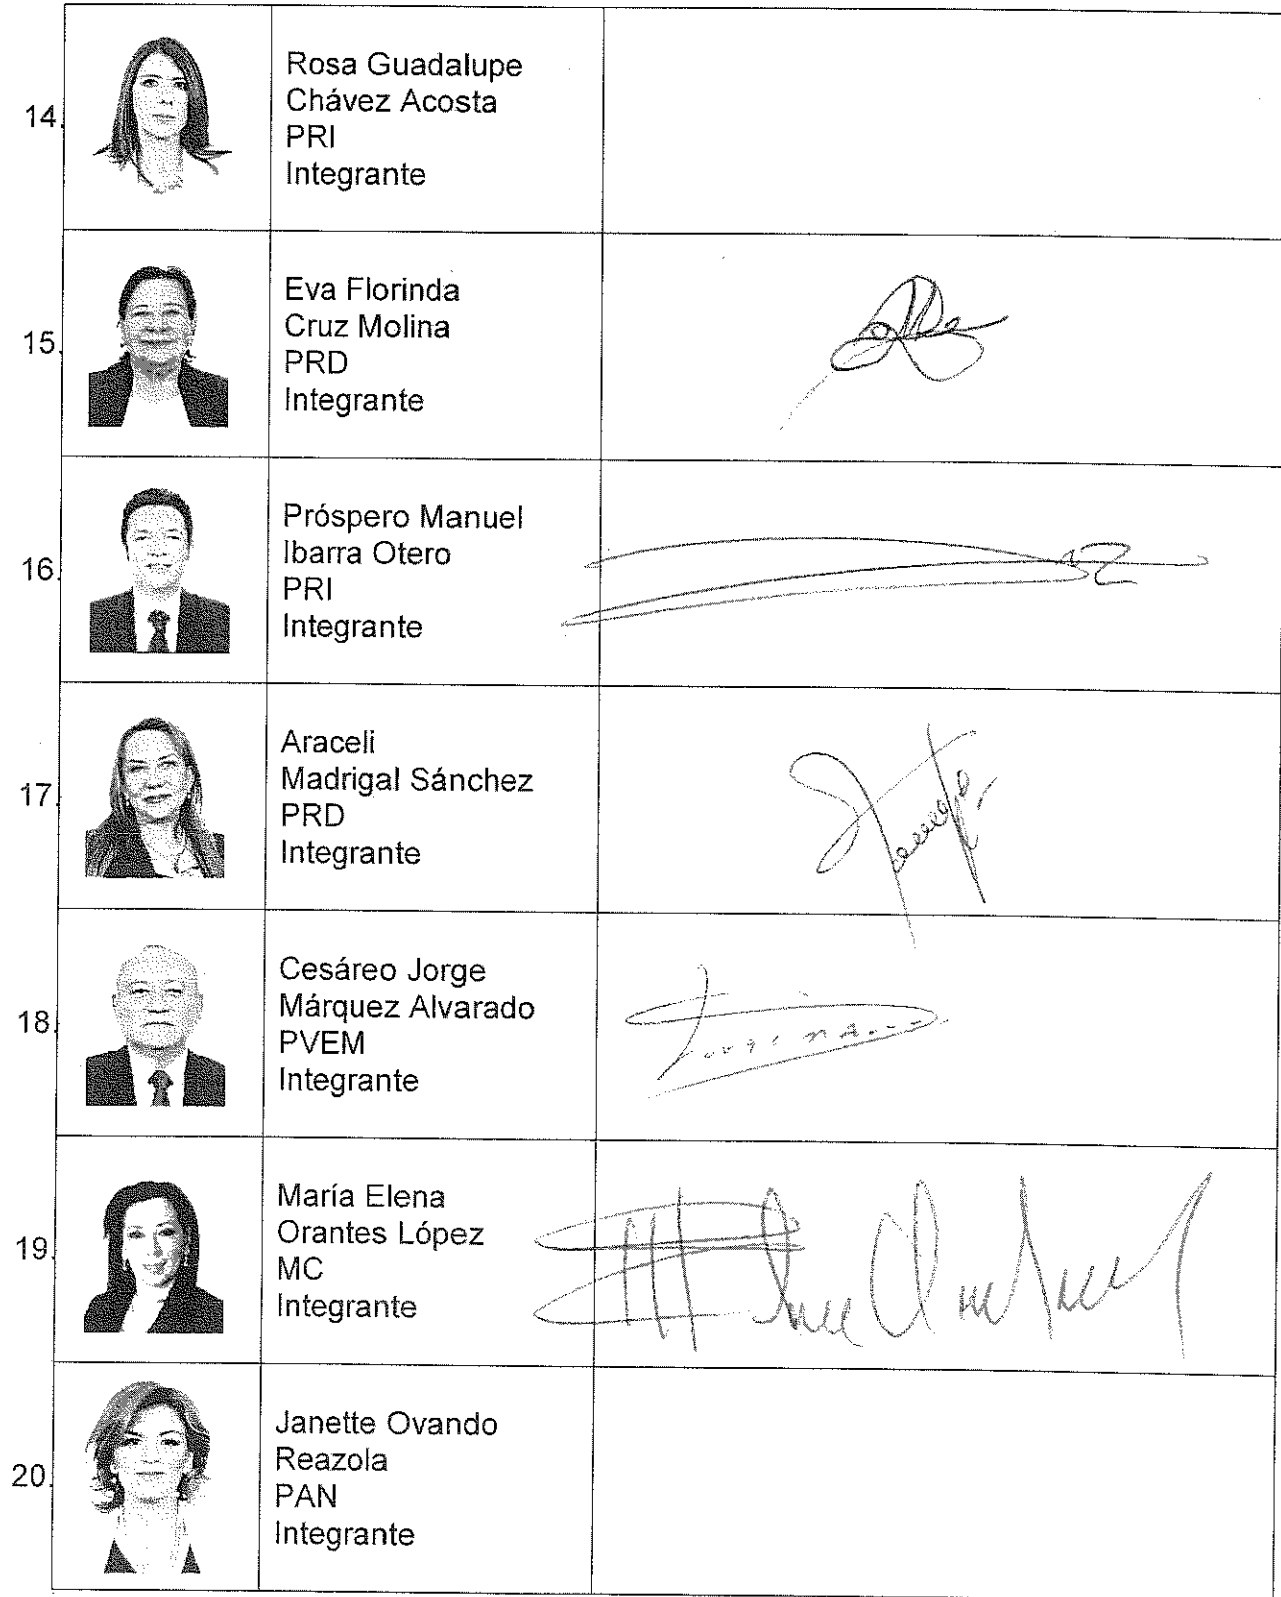 14.
Rosa Guadalupe
Chávez Acosta
PRI
Integrante
15.
Eva Florinda
Cruz Molina
PRD
Integrante
16.
Próspero Manuel
Ibarra Otero
PRI
Integrante
17.
Araceli
Madrigal Sánchez
PRD
Integrante
18.
Cesáreo Jorge
Márquez Alvarado
PVEM
Integrante
19.
María Elena
Orantes López
MC
Integrante
20.
Janette Ovando
Reazola
PAN
Integrante